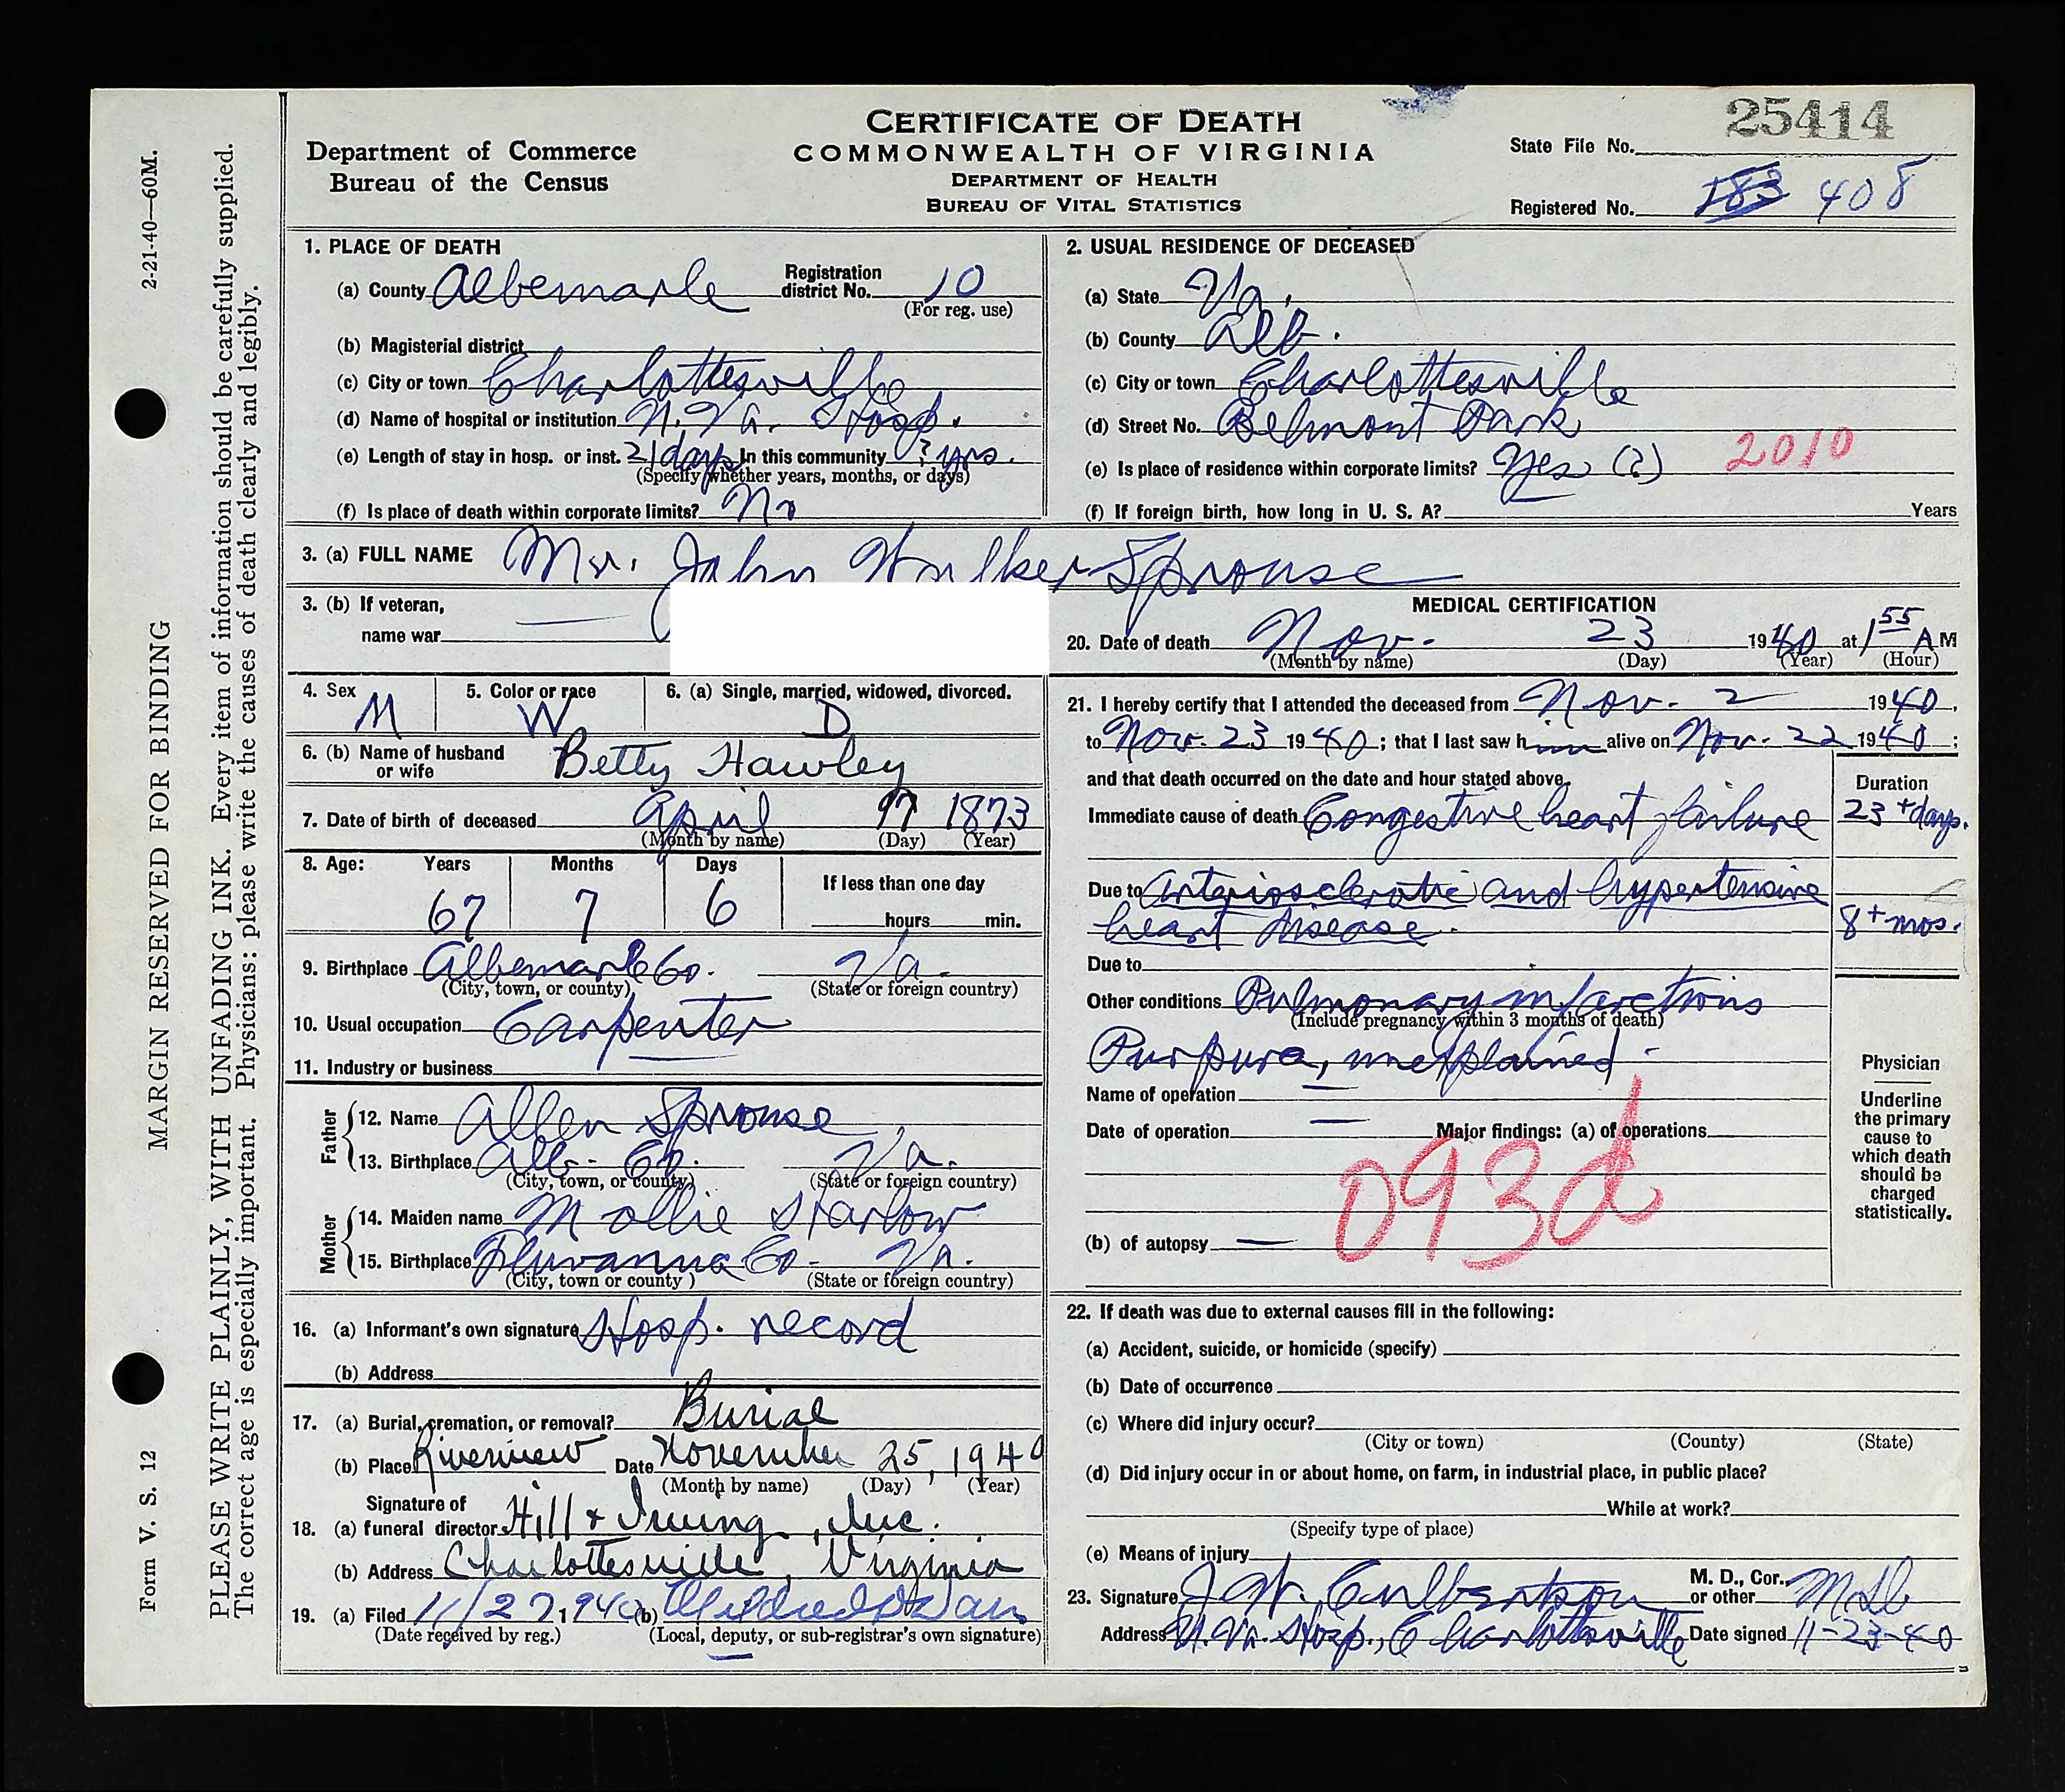 25414
CERTIFICATE OF DEATH
COMMONWEALTH OF VIRGINIA
DEPARTMENT OF HEALTH
BUREAU OF VITAL STATISTICS
Department of Commerce
Bureau of the Census
State File No.
Registered No. 183 408
2-21-40—60M.
MARGIN RESERVED FOR BINDING
Form V. S. 12
PLEASE WRITE PLAINLY, WITH UNFADING INK. Every item of information should be carefully supplied.
The correct age is especially important. Physicians: please write the causes of death clearly and legibly.
1. PLACE OF DEATH
(a) County Albemarle Registration district No. 10
(For reg. use)
(b) Magisterial district
(c) City or town Charlottesville
(d) Name of hospital or institution U. Va. Hosp.
(e) Length of stay in hosp. or inst. 21 days In this community ? yrs.
(Specify whether years, months, or days)
(f) Is place of death within corporate limits? No
2. USUAL RESIDENCE OF DECEASED
(a) State Va.
(b) County Alb.
(c) City or town Charlottesville
(d) Street No. Belmont Park
(e) Is place of residence within corporate limits? Yes (?) 2010
(f) If foreign birth, how long in U. S. A? Years
3. (a) FULL NAME Mr. John Walker Sprouse
3. (b) If veteran,
name war —
4. Sex M
5. Color or race W
6. (a) Single, married, widowed, divorced. D
6. (b) Name of husband or wife Betty Hawley
7. Date of birth of deceased April 17 1873
(Month by name) (Day) (Year)
8. Age: Years Months Days If less than one day
67 7 6 hours min.
9. Birthplace Albemarle Co. Va.
(City, town, or county) (State or foreign country)
10. Usual occupation Carpenter
11. Industry or business
Father
12. Name Allen Sprouse
13. Birthplace Alb. Co. Va.
(City, town, or county) (State or foreign country)
Mother
14. Maiden name Mollie Harlow
15. Birthplace Fluvanna Co. Va.
(City, town or county) (State or foreign country)
16. (a) Informant's own signature Hosp. record
(b) Address
17. (a) Burial, cremation, or removal? Burial
(b) Place Riverview Date November 25, 1940
(Month by name) (Day) (Year)
18. Signature of
(a) funeral director Hill & Irving, Inc.
(b) Address Charlottesville, Virginia
19. (a) Filed 11/27 1940 (b) Mildred
(Date received by reg.) (Local, deputy, or sub-registrar's own signature)
MEDICAL CERTIFICATION
20. Date of death Nov. 23 1940 at 1 55 A M
(Month by name) (Day) (Year) (Hour)
21. I hereby certify that I attended the deceased from Nov. 2 1940,
to Nov. 23 1940; that I last saw him alive on Nov. 22 1940;
and that death occurred on the date and hour stated above.
Duration
Immediate cause of death Congestive heart failure 23 + days.
Due to arteriosclerotic and hypertensive
heart disease. 8 + mos.
Due to
Other conditions Pulmonary infarctions
(Include pregnancy within 3 months of death)
Purpura, unexplained -
Name of operation —
Date of operation — Major findings: (a) of operations
093d
(b) of autopsy —
Physician
Underline
the primary
cause to
which death
should be
charged
statistically.
22. If death was due to external causes fill in the following:
(a) Accident, suicide, or homicide (specify)
(b) Date of occurrence
(c) Where did injury occur?
(City or town) (County) (State)
(d) Did injury occur in or about home, on farm, in industrial place, in public place?
While at work?
(Specify type of place)
(e) Means of injury
23. Signature J. W. Culbertson M. D., Cor., or other
Address U. Va. Hosp., Charlottesville Date signed 11-23-40